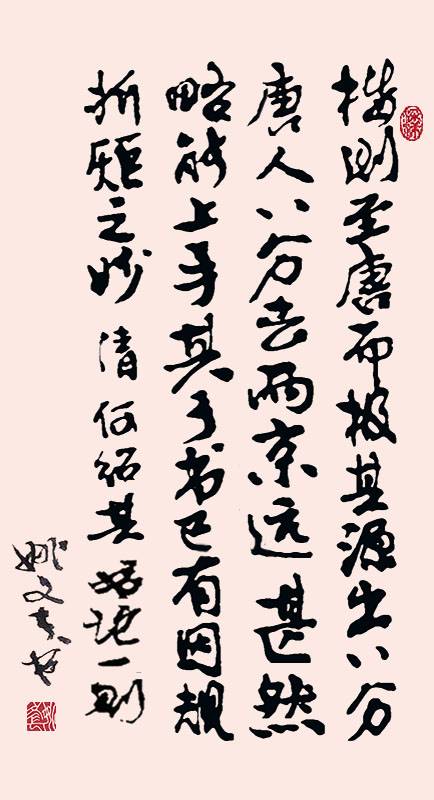 楷则至唐而极其源出八分
唐人八分去两京远甚然
略能上手其于书已有因规
折矩之妙 清 何绍基 书论一则
姚文